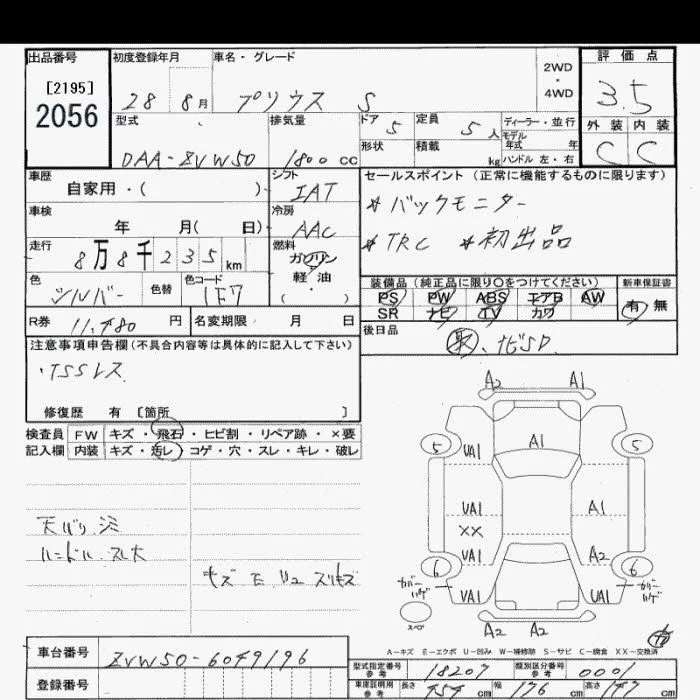 出品番号 初度登録年月 車名・グレード 2WD・4WD 評価点
[2195]
2056 28 8月 プリウス S 3.5
型式 排気量 ドア 5 定員 5人 ディーラー・並行 外装 内装
DAA-ZVW50 1800cc 形状 積載 kg モデル年式 年 C C
ハンドル 左・右
車歴 自家用・( ) シフト IAT セールスポイント(正常に機能するものに限ります)
車検 年 月( 日) 冷房 AAC *バックモニター
走行 8万8千235km 燃料 ガソリン 軽・油 ( ・ ) *TRC *初出品
色 シルバー 色替 色コード 1F7 装備品(純正品に限り〇をつけてください) 新車保証書
PS PW ABS エアB AW 有 無
SR ナビ TV カワ
R券 11,480円 名変期限 月 日 後日品
注意事項申告欄(不具合内容等は具体的に記入して下さい) 取、ナビSD
・TSSレス
修復歴 有 [箇所 ]
検査員 FW キズ・飛石・ヒビ割・リペア跡・×要
記入欄 内装 キズ・汚レ・コゲ・穴・スレ・キレ・破レ
A2 A1
5 UA1 A1 5
UA1 A1
XX
UA1 A2
6 6
カバーハゲ UA1 UA1 カバーハゲ
スペア
A2 A2
天バリ シミ
ハンドル スレ大
キズ
A-キズ E-エクボ U-凹み W-補修跡 S-サビ C-腐食 XX-交換済
車台番号 ZVW50-6049196
登録番号
型式指定番号 参考 18207 類別区分番号 参考 0001
車庫証明用 参考 長さ 454cm 幅 176cm 高さ 147cm